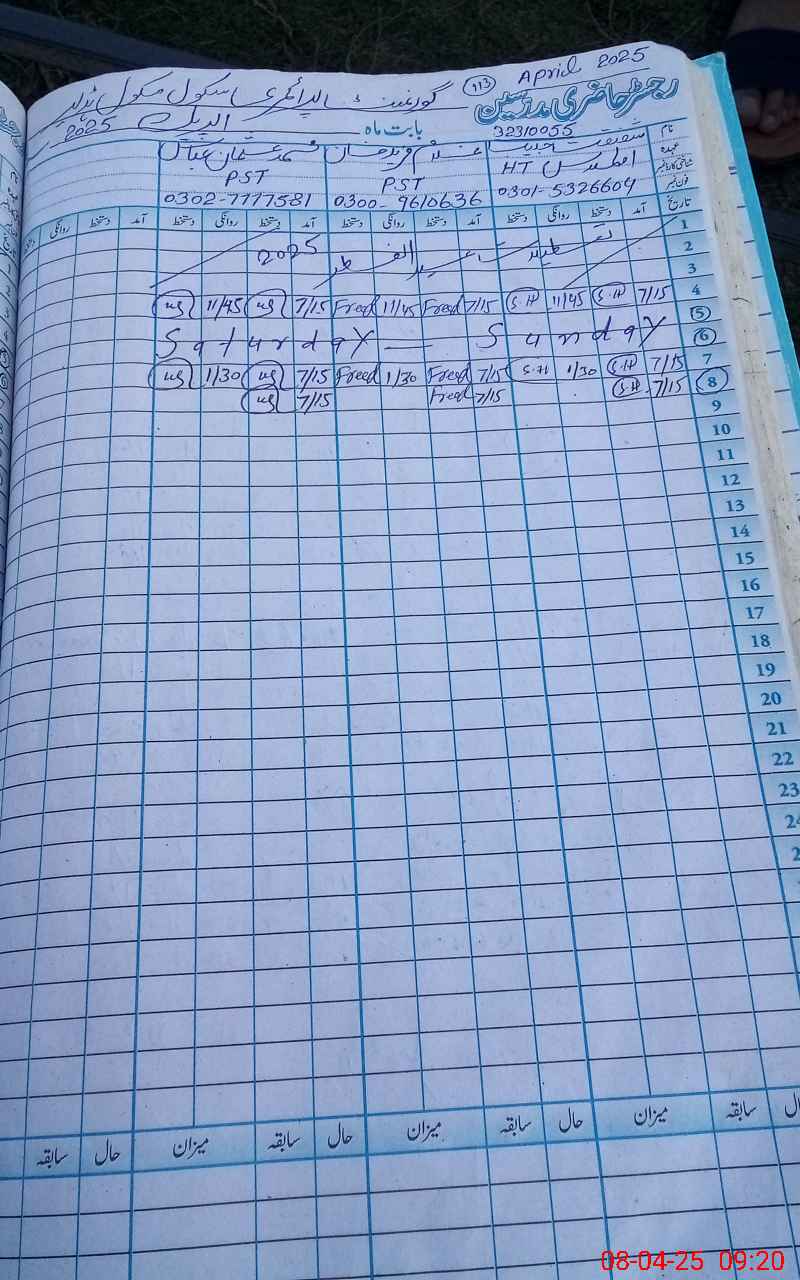 113 April 2025
رجسٹر حاضری مدرسین
گورنمنٹ پرائمری سکول
بابت ماہ اپریل 2025
32310055
نام شفقت حبیب غلام فرید خان محمد عثمان عباس
عہدہ HT PST PST
فون نمبر 0301-5326604 0300-9610636 0302-7777581
تاریخ آمد دستخط روانگی دستخط آمد دستخط روانگی دستخط آمد دستخط روانگی دستخط آمد دستخط روانگی دستخط
1
2 تعطیلات عید الفطر 2025
3
4 7/15 S.H 11/45 S.H 7/15 Freed 11/45 Freed 7/15 us 11/45 us
5
6 Saturday — Sunday
7 7/15 S.H 1/30 S.H 7/15 Freed 1/30 Freed 7/15 us 1/30 us
8 7/15 S.H 7/15 Freed 7/15 us
9
10
11
12
13
14
15
16
17
18
19
20
21
22
23
24
حال سابقہ میزان حال سابقہ میزان حال سابقہ میزان حال سابقہ
08-04-25 09:20